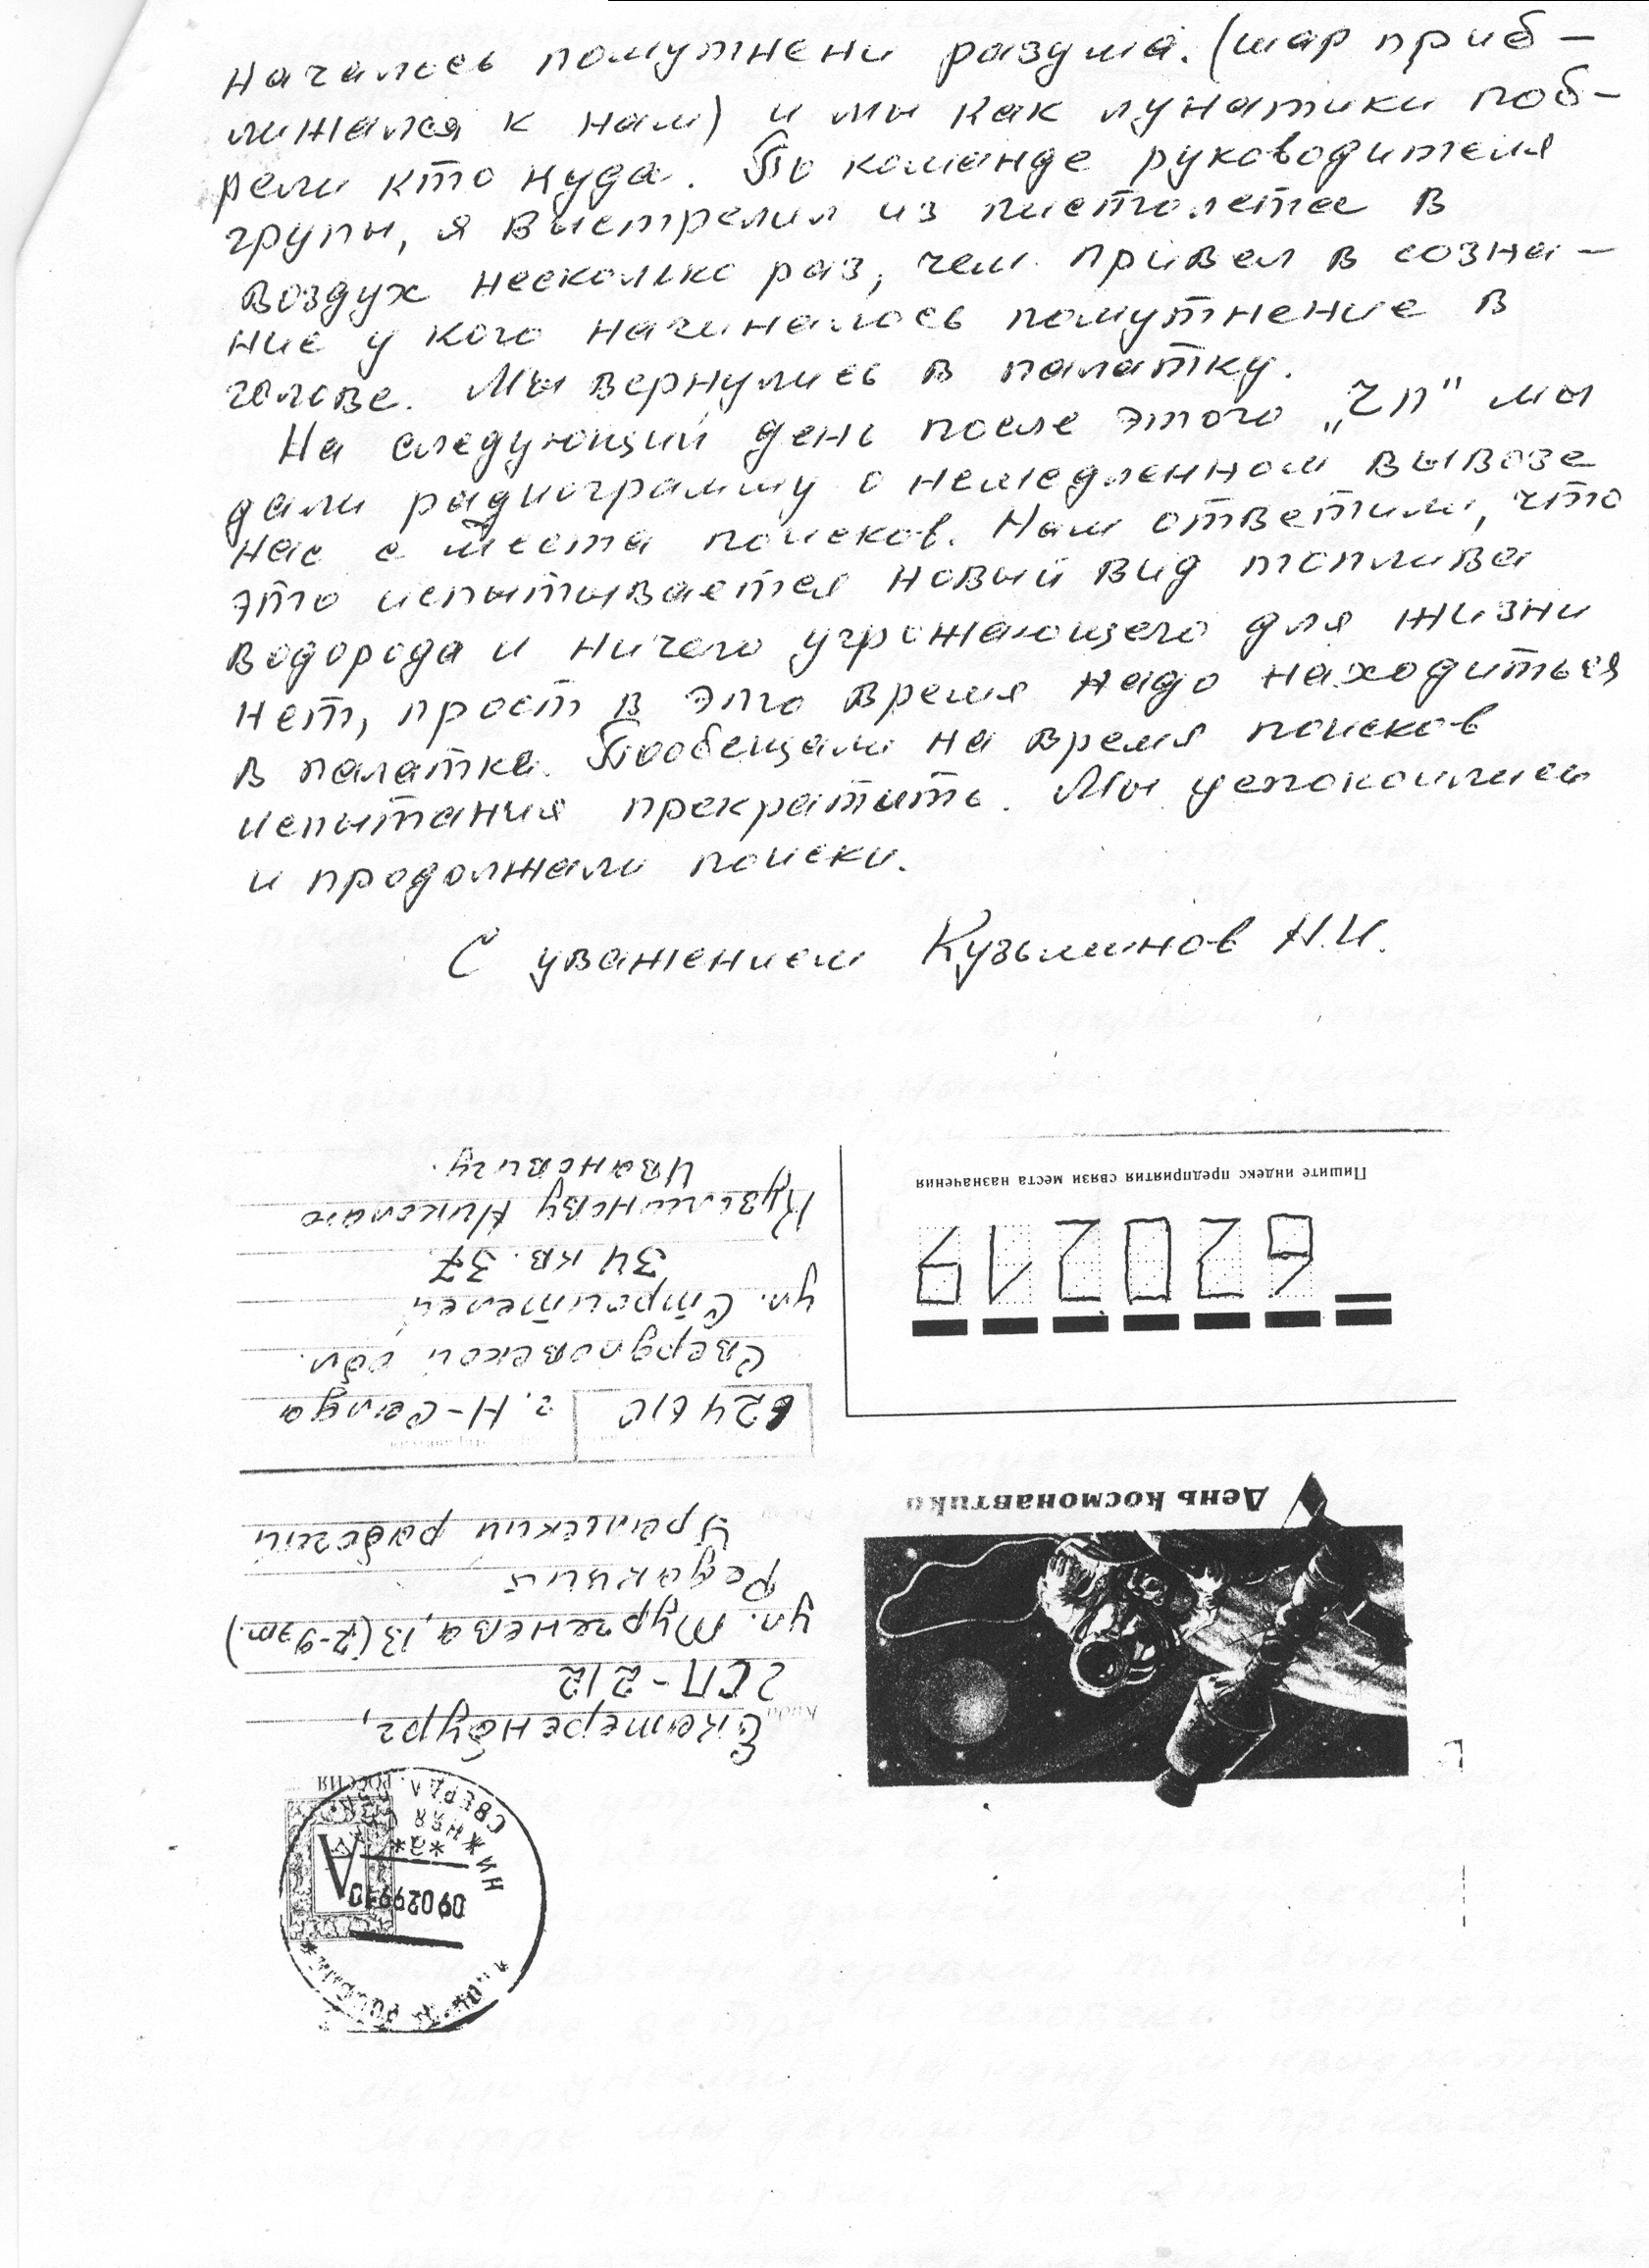 началось помутнени разума. (шар приб-
лижался к нам) и мы как лунатики поб-
рели кто куда. По команде руководителя
групы, я выстрелил из пистолета в
воздух несколько раз, чем привел в созна-
ние у кого начиналось помутнение в
голове. Мы вернулись в палатку.
На следующий день после этого „ЧП" мы
дали радиограмму о немедленном вывозе
нас с места поисков. Нам ответили, что
это испытывается новый вид топлива
водорода и ничего угрожающего для жизни
нет, прост в это время надо находиться
в палатке. Пообещали на время поисков
испытания прекратить. Мы успокоились
и продолжали поиски.
С уважением Кузьминов Н.И.
Екатеренбург,
2СП-212
ул. Тургенева, 13 (2-9 эт.)
Редакция
Уральский рабочий
624610 г. Н-Салда
Свердловской обл.
ул. Строителей
34 кв. 37
Кузьминову Николаю
Ивановичу.
День космонавтики
620219
Пишите индекс предприятия связи места назначения
РОССИЯ
А
СВЕРДЛ.
*а*